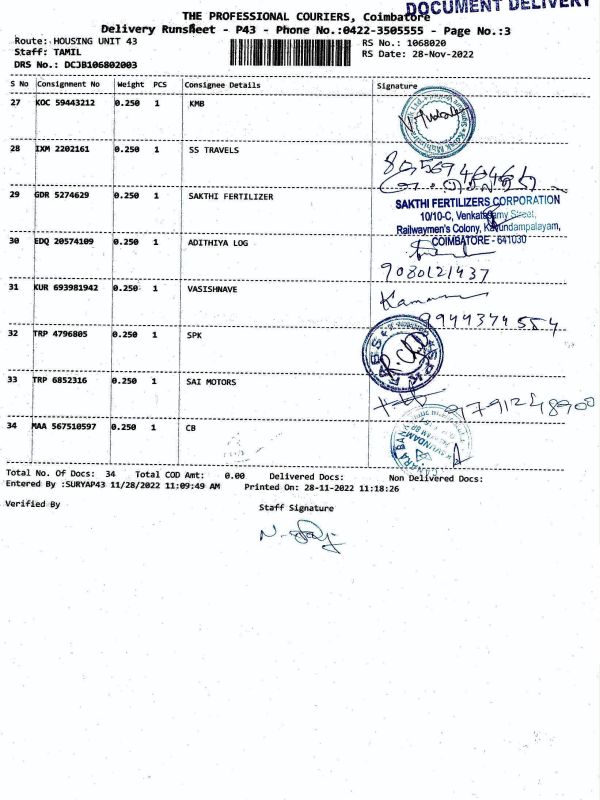 DOCUMENT DELIVERY
THE PROFESSIONAL COURIERS, Coimbatore
Delivery Runsheet - P43 - Phone No.:0422-3505555 - Page No.:3
Route: HOUSING UNIT 43 RS No.: 1068020
Staff: TAMIL RS Date: 28-Nov-2022
DRS No.: DCJB106802003
S No Consignment No Weight PCS Consignee Details Signature
27 KOC 59443212 0.250 1 KMB
28 IXM 2202161 0.250 1 SS TRAVELS
29 GDR 5274629 0.250 1 SAKTHI FERTILIZER
SAKTHI FERTILIZERS CORPORATION
10/10-C, Venkatasamy Street,
Railwaymen's Colony, Kavundampalayam,
COIMBATORE - 641030
30 EDQ 20574109 0.250 1 ADITHIYA LOG
9080121437
31 KUR 693981942 0.250 1 VASISHNAVE
9944374554
32 TRP 4796805 0.250 1 SPK
SPK FABS
33 TRP 6852316 0.250 1 SAI MOTORS
9791248900
34 MAA 567510597 0.250 1 CB
CANARA BANK
Total No. Of Docs: 34 Total COD Amt: 0.00 Delivered Docs: Non Delivered Docs:
Entered By :SURYAP43 11/28/2022 11:09:49 AM Printed On: 28-11-2022 11:18:26
Verified By Staff Signature